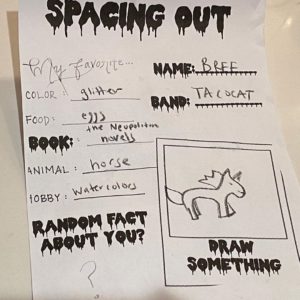 SPACING OUT
My favorite...
NAME: BREE
COLOR: glitter
BAND: TACOCAT
FOOD: eggs
BOOK: the Neopolitan novels
ANIMAL: horse
HOBBY: watercolors
RANDOM FACT ABOUT YOU?
?
DRAW SOMETHING